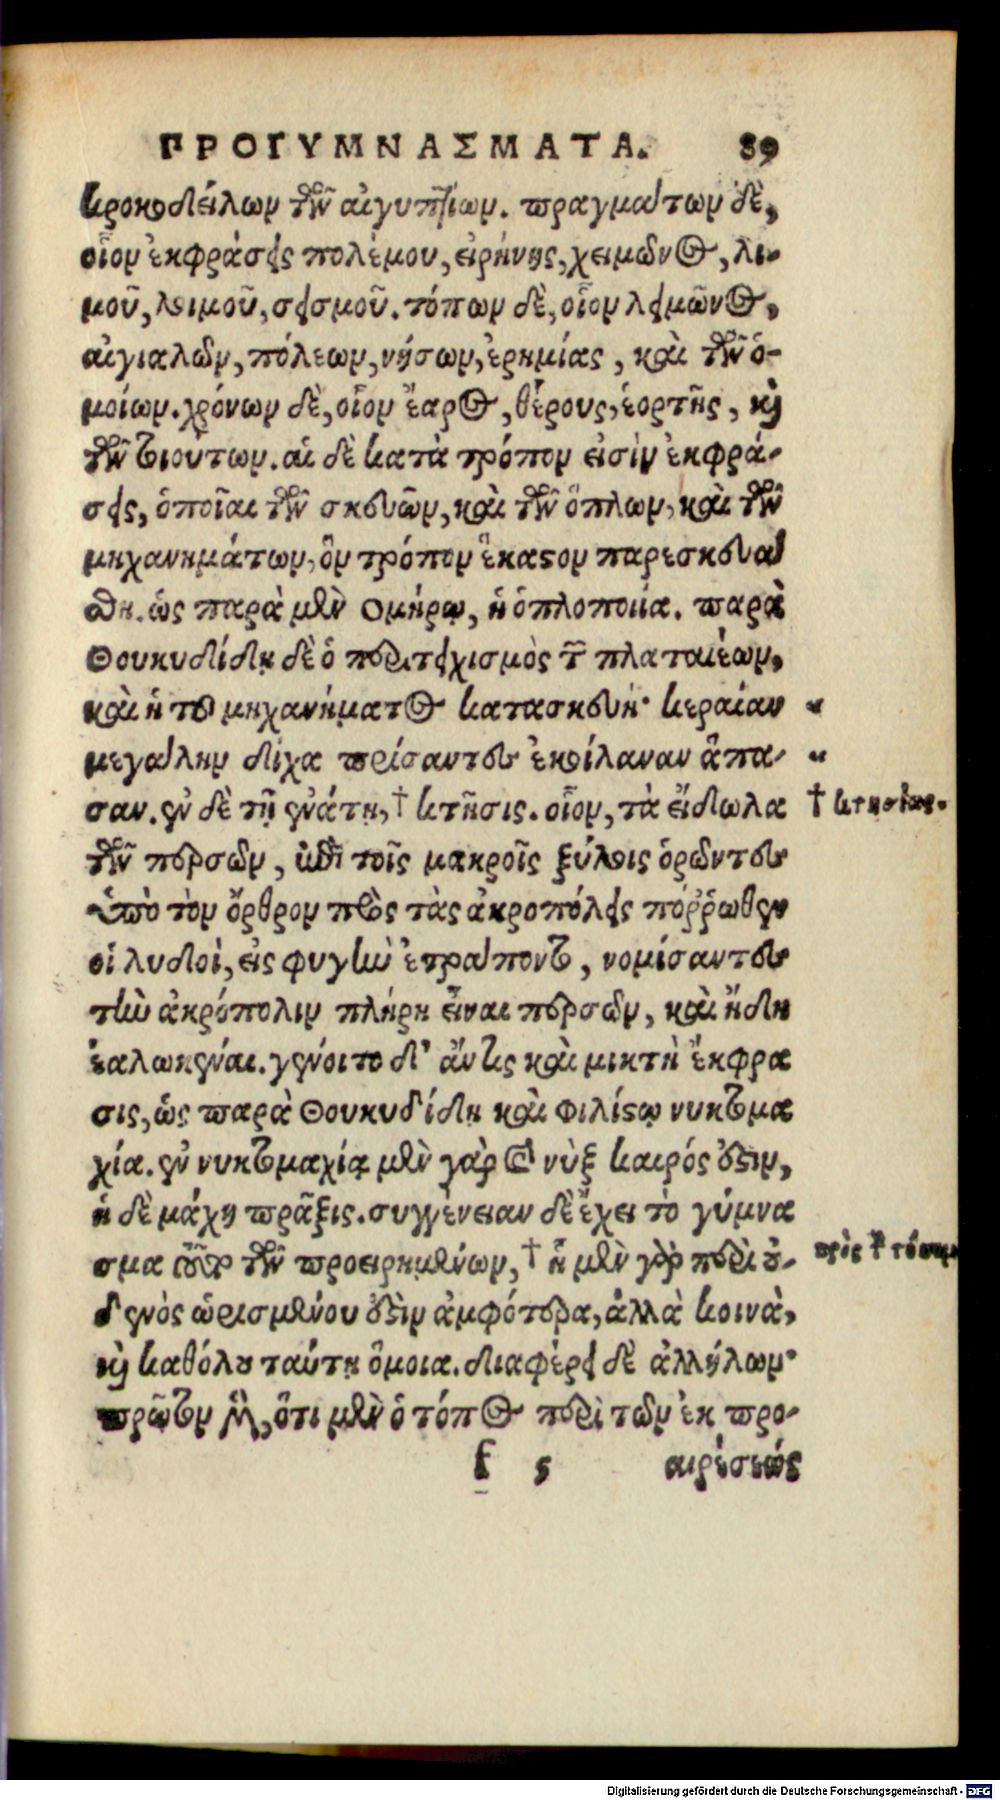 ΠΡΟΓΥΜΝΑΣΜΑΤΑ. 89
κροκοδείλων τῶν αἰγυπτίων. πραγμάτων δὲ,
οἷον ἐκφράσεις πολέμου, εἰρήνης, χειμῶνος, λι-
μοῦ, λοιμοῦ, σεισμοῦ. τόπων δὲ, οἷον λειμῶνος,
αἰγιαλῶν, πόλεων, νήσων, ἐρημίας, καὶ τῶν ὁ-
μοίων. χρόνων δὲ, οἷον ἔαρος, θέρους, ἑορτῆς, καὶ
τῶν τοιούτων. αἱ δὲ κατὰ τρόπον εἰσὶν ἐκφρά-
σεις, ὁποῖαι τῶν σκευῶν, καὶ τῶν ὅπλων, καὶ τῶν
μηχανημάτων, ὃν τρόπον ἕκαστον παρεσκευά
σθη. ὡς παρὰ μὲν Ομήρῳ, ἡ ὁπλοποιία. παρὰ
Θουκυδίδῃ δὲ ὁ περιτειχισμὸς τῶν πλαταιέων,
καὶ ἡ τοῦ μηχανήματος κατασκευή· κεραίαν "
μεγάλην δίχα πρίσαντες ἐκοίλαναν ἅπα- "
σαν. ἐν δὲ τῇ ἐνάτῃ, † κτῆσις. οἷον, τὰ εἴδωλα † κτησίας.
τῶν περσῶν, ἐπὶ τοῖς μακροῖς ξύλοις ὁρῶντες
ὑπὸ τὸν ὄρθρον πρὸς τὰς ἀκροπόλεις πόῤῥωθεν
οἱ λυδοὶ, εἰς φυγὴν ἐτράποντο, νομίσαντες
τὴν ἀκρόπολιν πλήρη εἶναι περσῶν, καὶ ἤδη
ἑαλωκέναι. γένοιτο δ' ἄν τις καὶ μικτὴ ἔκφρα
σις, ὡς παρὰ Θουκυδίδῃ καὶ Φιλίστῳ νυκτομα
χία. ἐν νυκτομαχίᾳ μὲν γὰρ ἡ νὺξ καιρός ἐστιν,
ἡ δὲ μάχη πρᾶξις. συγγένειαν δὲ ἔχει τὸ γύμνα
σμα τοῦτο τῶν προειρημένων, † ἡ μὲν γὰρ περὶ οὐ- πρὸς
δενὸς ὡρισμένου ἐστὶν ἀμφότερα, ἀλλὰ κοινὰ,
καὶ καθόλου ταύτῃ ὅμοια. διαφέρει δὲ ἀλλήλων·
πρῶτον μὲν, ὅτι μὲν ὁ τόπος περὶ τῶν ἐκ προ-
f 5 αιρέσεώς
Digitalisierung gefördert durch die Deutsche Forschungsgemeinschaft - DFG